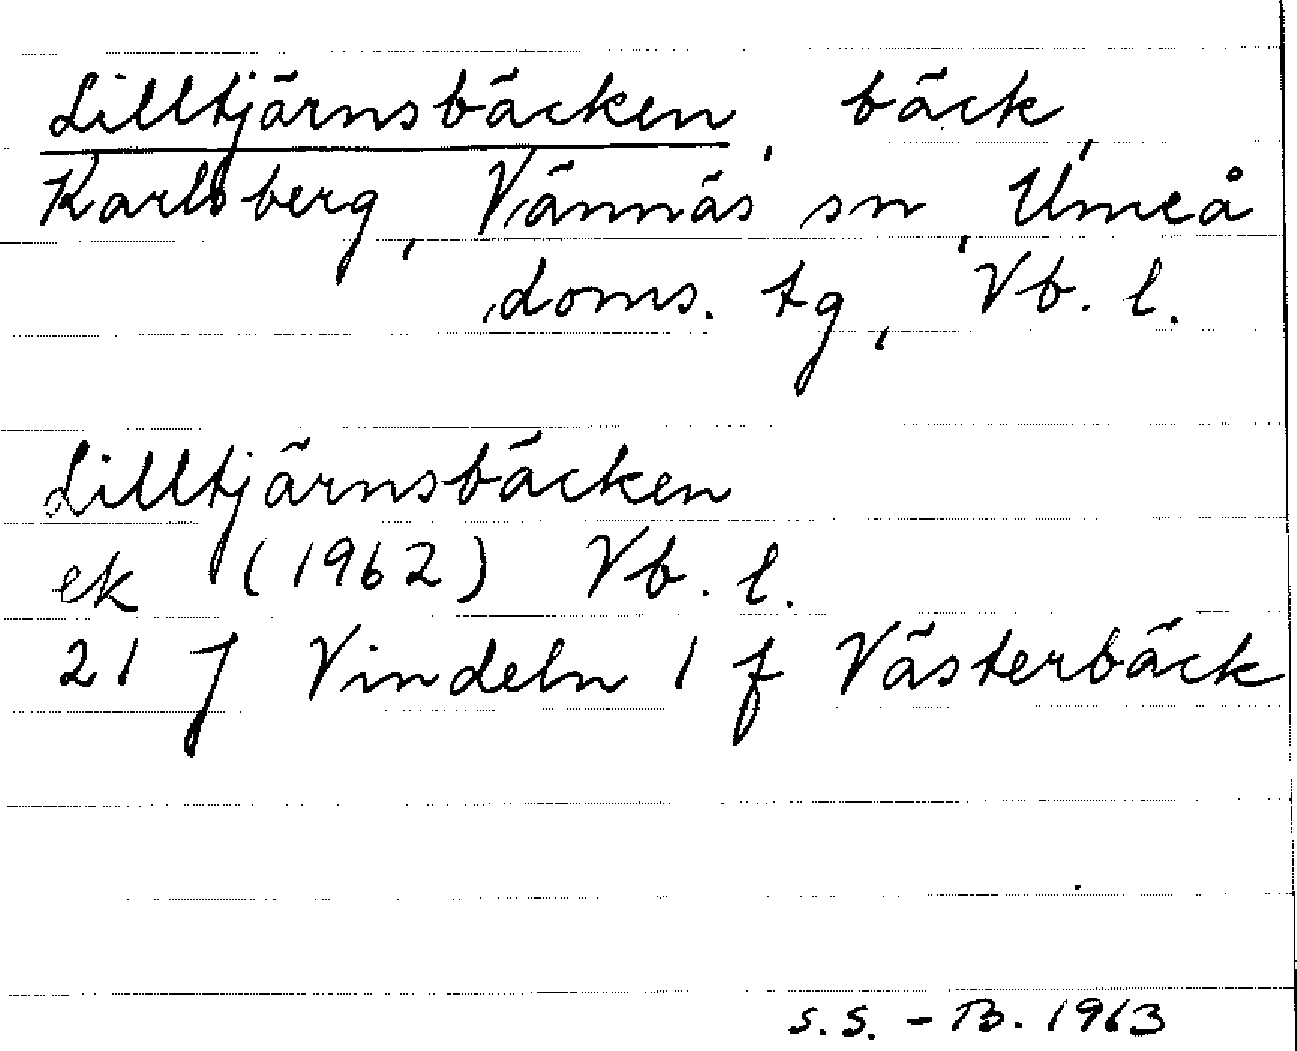 Lilltjärnsbäcken, bäck,
Karlsberg, Vännäs sn, Umeå
doms. tg, Vb. l.
Lilltjärnsbäcken
ek (1962) Vb. l.
21 J Vindeln 1 f Västerbäck
S.S. - B. 1963